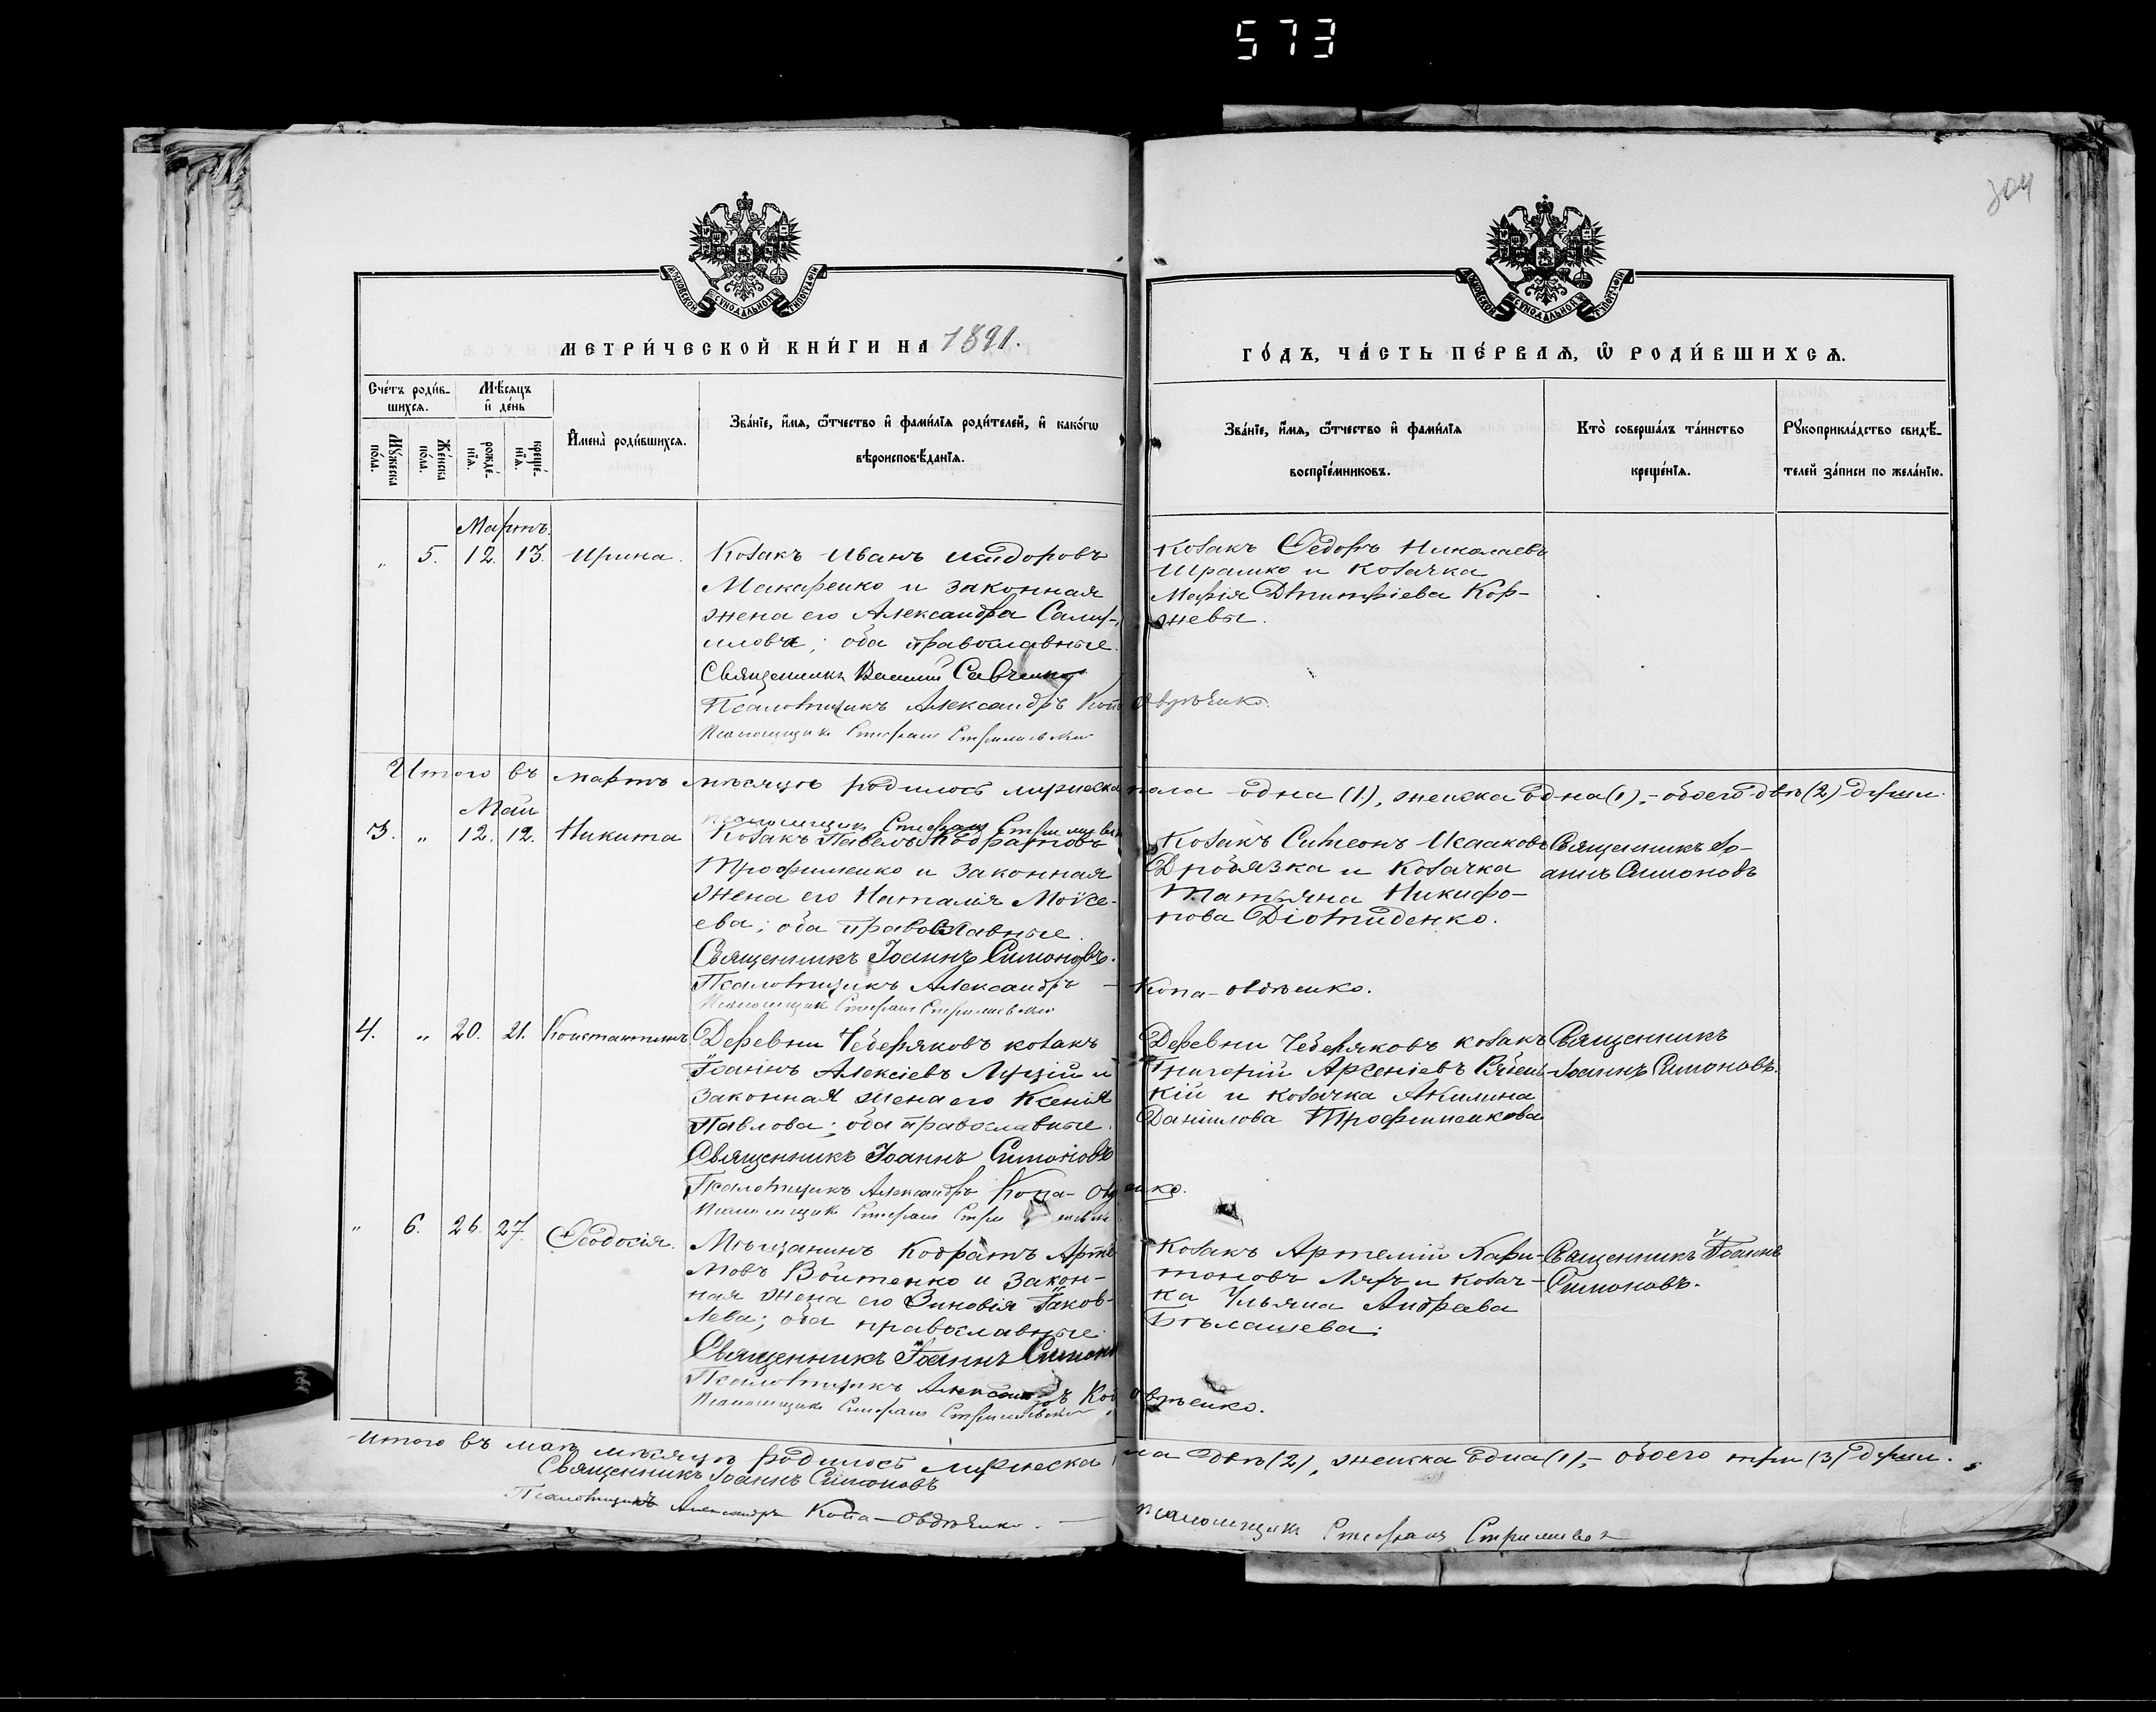 573
304
МОСКОВСКОЙ СѴНОДАЛЬНОЙ ТИПОГРАФІИ
МОСКОВСКОЙ СѴНОДАЛЬНОЙ ТИПОГРАФІИ
МЕТРИ́ЧЕСКОЙ КНИ́ГИ НА 1891.
ГО́ДЪ, ЧА́СТЬ ПЕ́РВАѦ, Ѡ҆ РОДИ́ВШИХСѦ.
Сче́тъ роди́в-
шихсѧ.
Мѣ́сѧцъ
и҆ де́нь
Мꙋ́жеска
по́ла.
Же́нска
по́ла.
рожде́-
нїѧ.
креще́-
нїѧ.
И҆мена̀ роди́вшихсѧ.
Зва́нїе, и҆́мѧ, ѻ҆́тчество и҆ фами́лїѧ роди́телей, и҆ како́гѡ
вѣроисповѣ́данїѧ.
Зва́нїе, и҆́мѧ, ѻ҆́тчество и҆ фами́лїѧ
воспрїе́мниковъ.
Кто̀ соверша́лъ та́инство
креще́нїѧ.
Рꙋкоприкла́дство свидѣ́-
телей за́писи по жела́нїю.
Мартъ.
„ 5. 12. 13. Ирина. Козакъ Иванъ Исидоровъ
Макаренко и законная
жена его Александра
оба православные.
Священникъ Василій Савченко
Псаломщикъ Александръ Копа-Овдѣенко.
Псаломщикъ Стефанъ
Козакъ Ѳедоръ Николаевъ
Шрамко и козачка
Марія Дмитріева Кор-
жевы.
Итого въ мартѣ мѣсяцѣ родилось мужеска пола одна (1), женска одна (1), – обоего двѣ (2) души.
Май
псаломщикъ Стефанъ
3. „ 12. 12. Никита Козакъ Павелъ Кодратовъ
Трофименко и законная
жена его Наталія Моѵсе-
ева; оба православные.
Священникъ Іоаннъ Симоновъ.
Псаломщикъ Александръ – Копа-Овдѣенко.
Псаломщикъ Стефанъ
Козакъ Симеонъ Исааковъ
Дробязка и козачка
Татьяна Никифо-
рова Діомиденко.
Священникъ Іо-
аннъ Симоновъ
4. „ 20. 21. Константинъ Деревни Чеберяковъ козакъ
Іоаннъ Алексіевъ Луцій и
законная жена его Ксенія
Павлова; оба православные.
Священникъ Іоаннъ Симоновъ
Псаломщикъ Александръ Копа-Овдѣенко.
Псаломщикъ Стефанъ
Деревни Чеберяковъ козакъ
Григорій Арсеніевъ
кій и козачка Акилина
Даніилова Трофименкова
Священникъ
Іоаннъ Симоновъ.
„ 6. 26. 27. Ѳеодосія. Мѣщанинъ Кодратъ Арте-
мовъ Войтенко и закон-
ная жена его Зиновія Іаков-
лева; оба православные.
Священникъ Іоаннъ Симоновъ
Псаломщикъ Александръ Копа-Овдѣенко.
Псаломщикъ Стефанъ
Козакъ Артемій Хари-
тоновъ Ляхъ и козач-
ка Ульяна Андреева
Бѣлашева.
Священникъ Іоаннъ
Симоновъ.
Итого въ маѣ мѣсяцѣ родилось мужеска пола двѣ (2), женска одна (1), – обоего три (3) души.
Священникъ Іоаннъ Симоновъ
Псаломщикъ Александръ Копа-Овдѣенко. –
Псаломщикъ Стефанъ